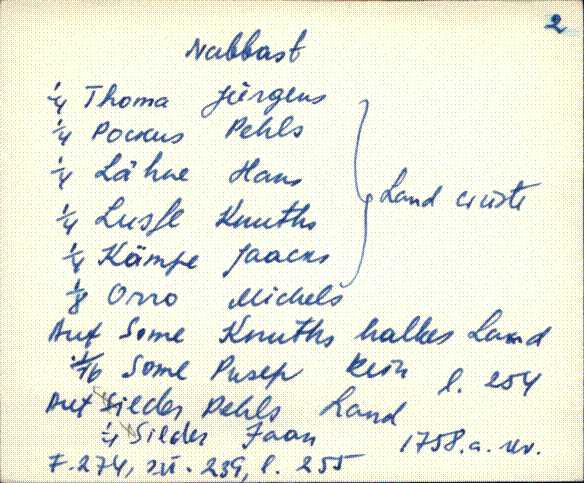 2
Nabbast
1/4 Thoma Jürgens
1/4 Pockus Pehls
1/4 Lähne Hans
1/4 Lusfe Knuths
1/4 Kämpe Jaacks
1/8 Orro Michels
Land
Auf Some Knuths halbes Land
1/16 Some Pusep kein l. 254
Auf Sieldes Pehls Land
1/4 Sildes Jaan 1758.a. rev.
F. 274, 239, l. 255